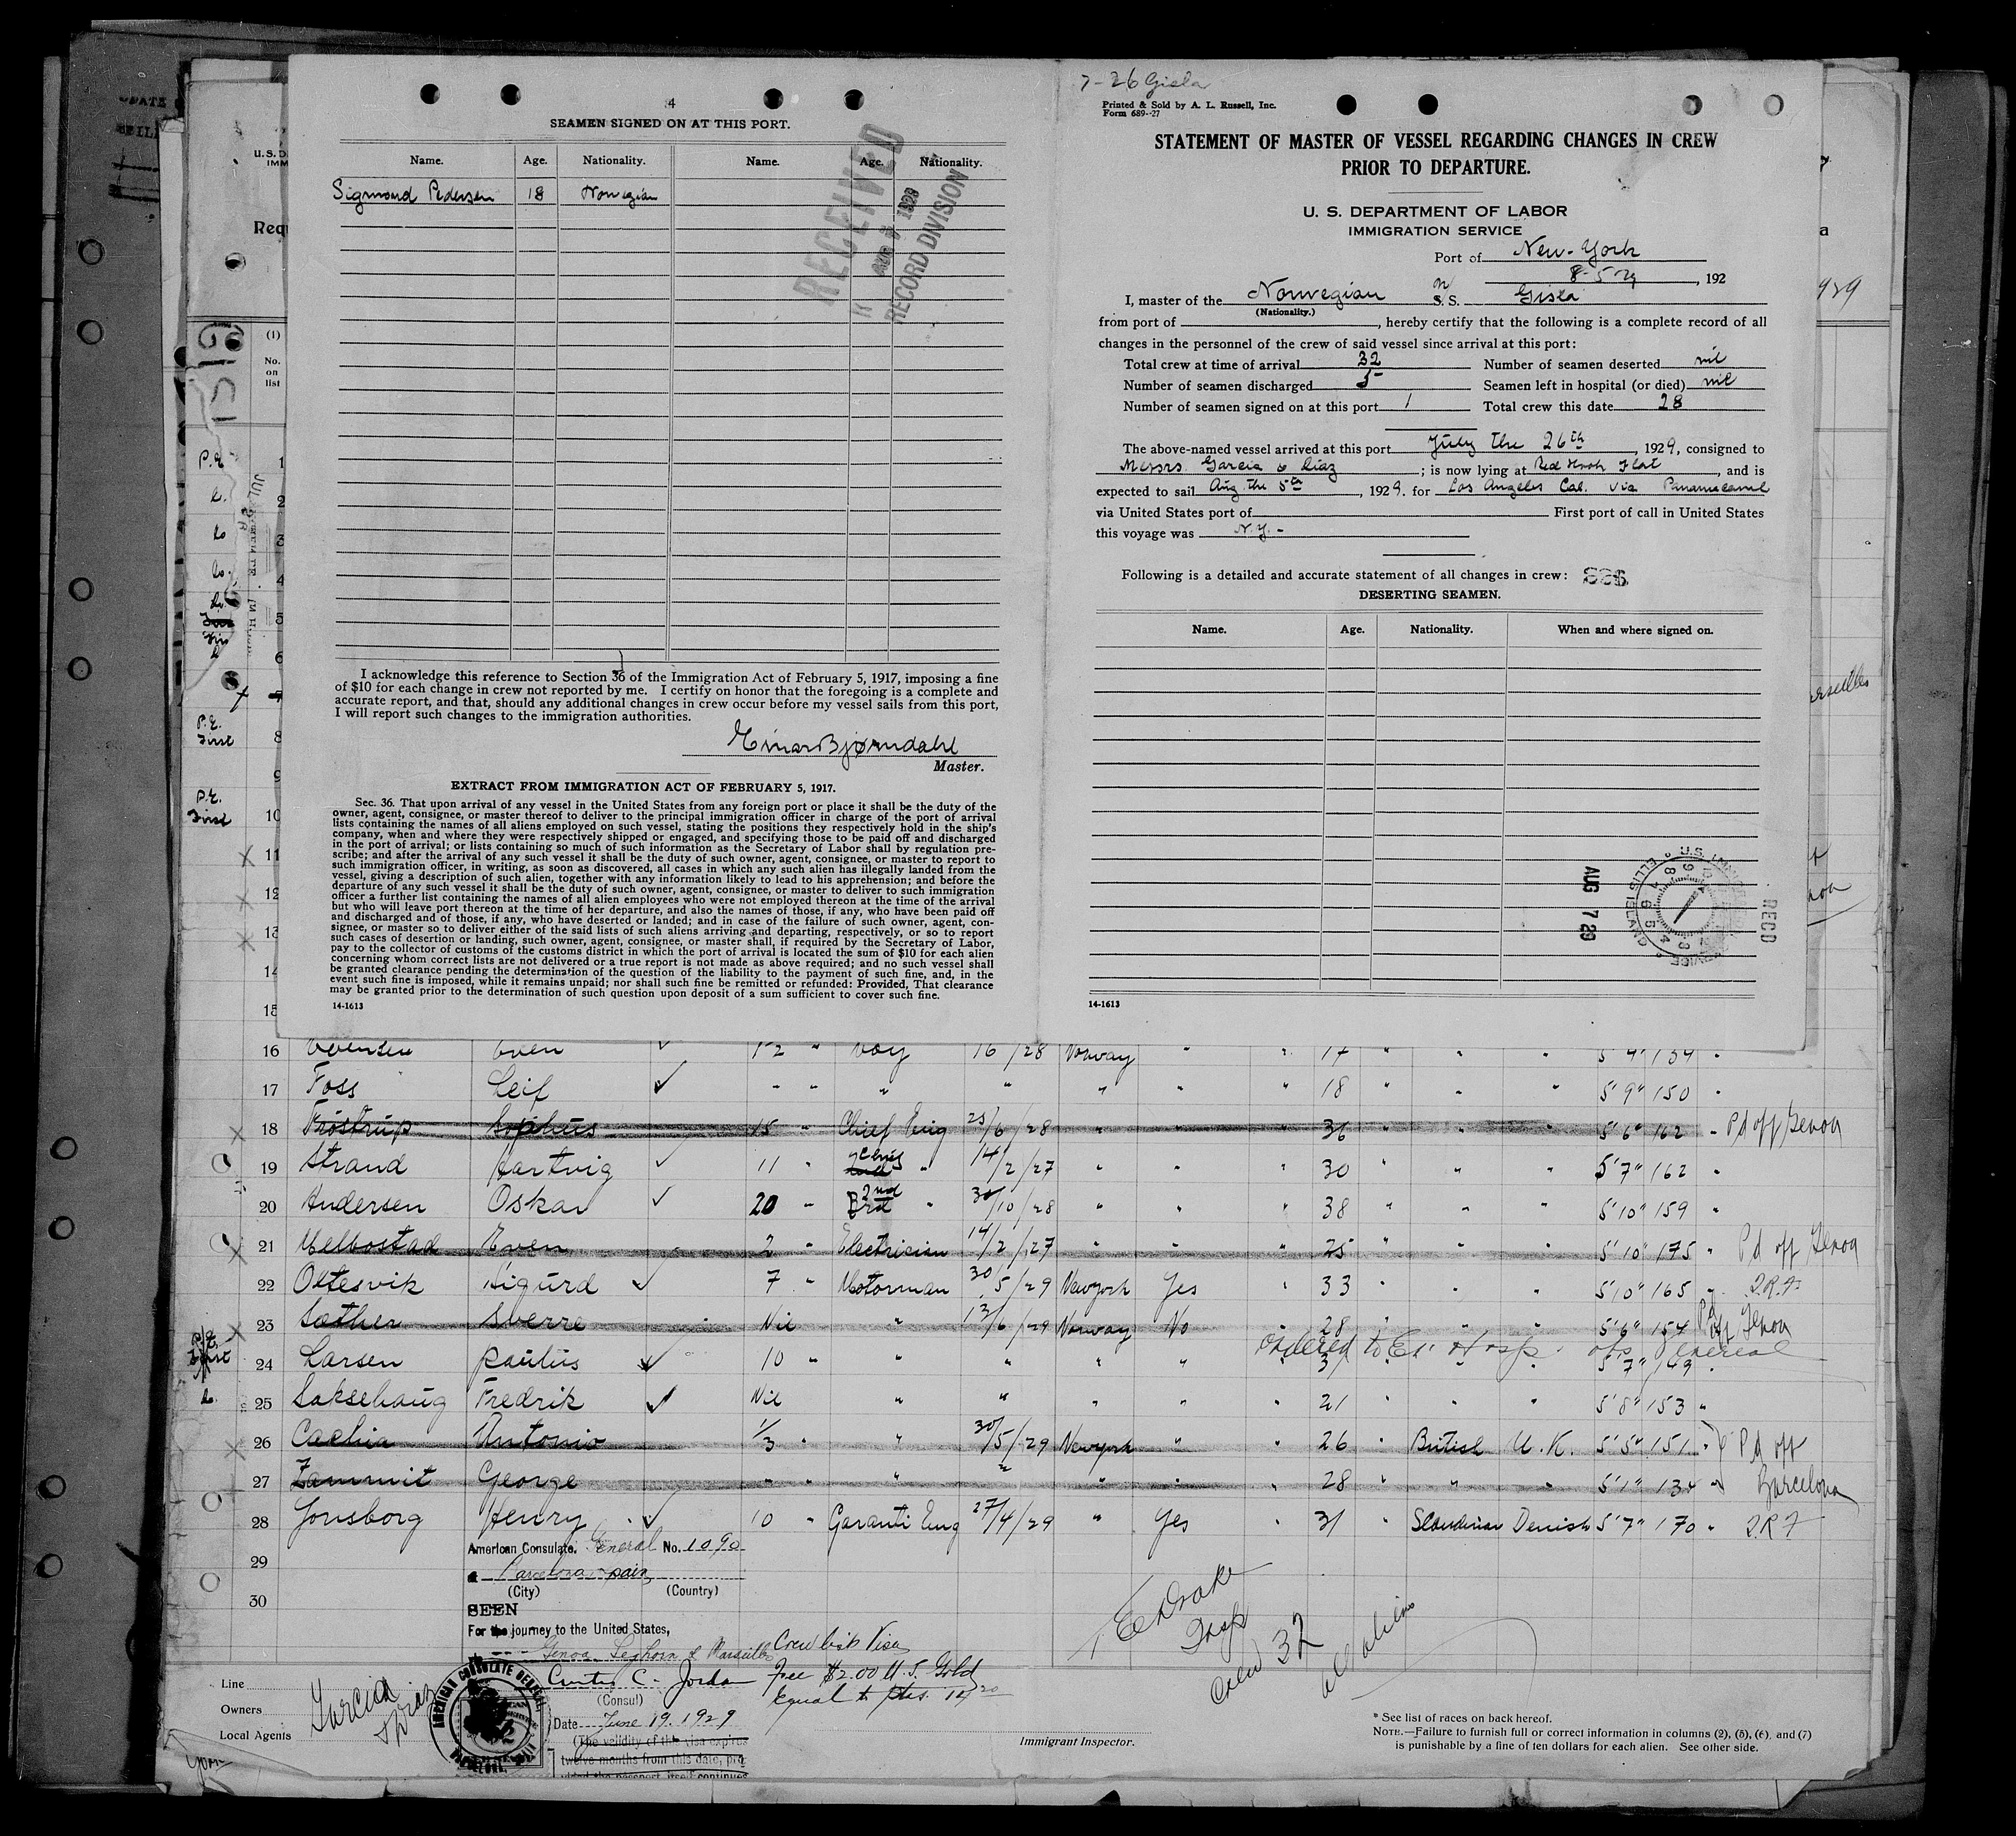 4
SEAMEN SIGNED ON AT THIS PORT.
Name. Age. Nationality. Name. Age. Nationality.
Sigmond Pedersen 18 Norwegian
RECEIVED
1929
RECORD DIVISION
I acknowledge this reference to Section 36 of the Immigration Act of February 5, 1917, imposing a fine
of $10 for each change in crew not reported by me. I certify on honor that the foregoing is a complete and
accurate report, and that, should any additional changes in crew occur before my vessel sails from this port,
I will report such changes to the immigration authorities.
Einar Bjørndahl
Master.
EXTRACT FROM IMMIGRATION ACT OF FEBRUARY 5, 1917.
Sec. 36. That upon arrival of any vessel in the United States from any foreign port or place it shall be the duty of the
owner, agent, consignee, or master thereof to deliver to the principal immigration officer in charge of the port of arrival
lists containing the names of all aliens employed on such vessel, stating the positions they respectively hold in the ship's
company, when and where they were respectively shipped or engaged, and specifying those to be paid off and discharged
in the port of arrival; or lists containing so much of such information as the Secretary of Labor shall by regulation pre-
scribe; and after the arrival of any such vessel it shall be the duty of such owner, agent, consignee, or master to report to
such immigration officer, in writing, as soon as discovered, all cases in which any such alien has illegally landed from the
vessel, giving a description of such alien, together with any information likely to lead to his apprehension; and before the
departure of any such vessel it shall be the duty of such owner, agent, consignee, or master to deliver to such immigration
officer a further list containing the names of all alien employees who were not employed thereon at the time of the arrival
but who will leave port thereon at the time of her departure, and also the names of those, if any, who have been paid off
and discharged and of those, if any, who have deserted or landed; and in case of the failure of such owner, agent, con-
signee, or master so to deliver either of the said lists of such aliens arriving and departing, respectively, or so to report
such cases of desertion or landing, such owner, agent, consignee, or master shall, if required by the Secretary of Labor,
pay to the collector of customs of the customs district in which the port of arrival is located the sum of $10 for each alien
concerning whom correct lists are not delivered or a true report is not made as above required; and no such vessel shall
be granted clearance pending the determination of the question of the liability to the payment of such fine, and, in the
event such fine is imposed, while it remains unpaid; nor shall such fine be remitted or refunded: Provided, That clearance
may be granted prior to the determination of such question upon deposit of a sum sufficient to cover such fine.
14-1613
7-26 Gisla
Printed & Sold by A. L. Russell, Inc.
Form 689--27
STATEMENT OF MASTER OF VESSEL REGARDING CHANGES IN CREW
PRIOR TO DEPARTURE.
U. S. DEPARTMENT OF LABOR
IMMIGRATION SERVICE
Port of New-York
8-5-29, 192
I, master of the Norwegian S. S. Gisla
(Nationality.)
from port of , hereby certify that the following is a complete record of all
changes in the personnel of the crew of said vessel since arrival at this port:
Total crew at time of arrival 32 Number of seamen deserted nil
Number of seamen discharged 5 Seamen left in hospital (or died) nil
Number of seamen signed on at this port 1 Total crew this date 28
The above-named vessel arrived at this port July the 26th, 1929, consigned to
Messrs. Garcia & Diaz ; is now lying at Red Hook Flat, and is
expected to sail Aug. the 5th, 1929. for Los Angeles Cal. via Panamacanal
via United States port of First port of call in United States
this voyage was N.Y.-
Following is a detailed and accurate statement of all changes in crew:
DESERTING SEAMEN.
Name. Age. Nationality. When and where signed on.
AUG 7 29
RECD
14-1613
(1)
No.
on
list
16 Even 1-2 " Boy 16 /28 Norway " " 17 " " " 5'4" 134 "
17 Foss Leif " " " " " " " 18 " " " 5'9" 150 "
18 Frostrup Sophus 15 " Chief Eng 25/6/28 " " " 36 " " " 5'6" 162 " Pd off Genoa
19 Strand Hartvig 11 " 2nd Chief " 14/2/27 " " " 30 " " " 5'7" 162 "
20 Andersen Oskar 20 " 3rd 2nd " 30/10/28 " " " 38 " " " 5'10" 159 "
21 Melbostad Even 2 " Electrician 14/2/27 " " " 25 " " " 5'10" 175 " Pd off Genoa
22 Oltesvik Sigurd 7 " Motorman 30/5/29 Newyork Yes " 33 " " " 5'10" 165 "
23 Sæther Sverre Nil " 13/6/29 Norway No " 28 " " " 5'6" 154 Pd off Genoa
Ordered to E.I. Hosp.
24 Larsen Paulus 10 " " " " " " 31 " " " 5'7" 149 "
25 Saksehaug Fredrik Nil " " " " " 21 " " " 5'8" 153 "
26 Cachia Antonio 1/3 " " 30/5/29 Newyork " " 26 " British U.K. 5'5" 151 " Pd off
27 Zammit George " " " " " " " 28 " " " 5'1" 134 " Barcelona
28 Jonsborg Henry 10 " Garanti Eng 27/4/29 " Yes " 31 " Scandinav Denish 5'7" 170 "
29
30
American Consulate General No. 1090
Barcelona Spain
(City) (Country)
SEEN
For the journey to the United States,
Genoa, Leghorn & Marseilles
Curtis C. Jordan
(Consul)
Date June 19, 1929
(The validity of this visa expires
twelve months from this date, pro-
vided the passport itself continues
Crew list Visa
Fee $2.00 U.S. Gold
equal to ptas. 14.20
E Drake
Insp
Crew 32
Line
Owners
Local Agents
Garcia & Diaz
Immigrant Inspector.
* See list of races on back hereof.
NOTE.—Failure to furnish full or correct information in columns (2), (5), (6), and (7)
is punishable by a fine of ten dollars for each alien. See other side.